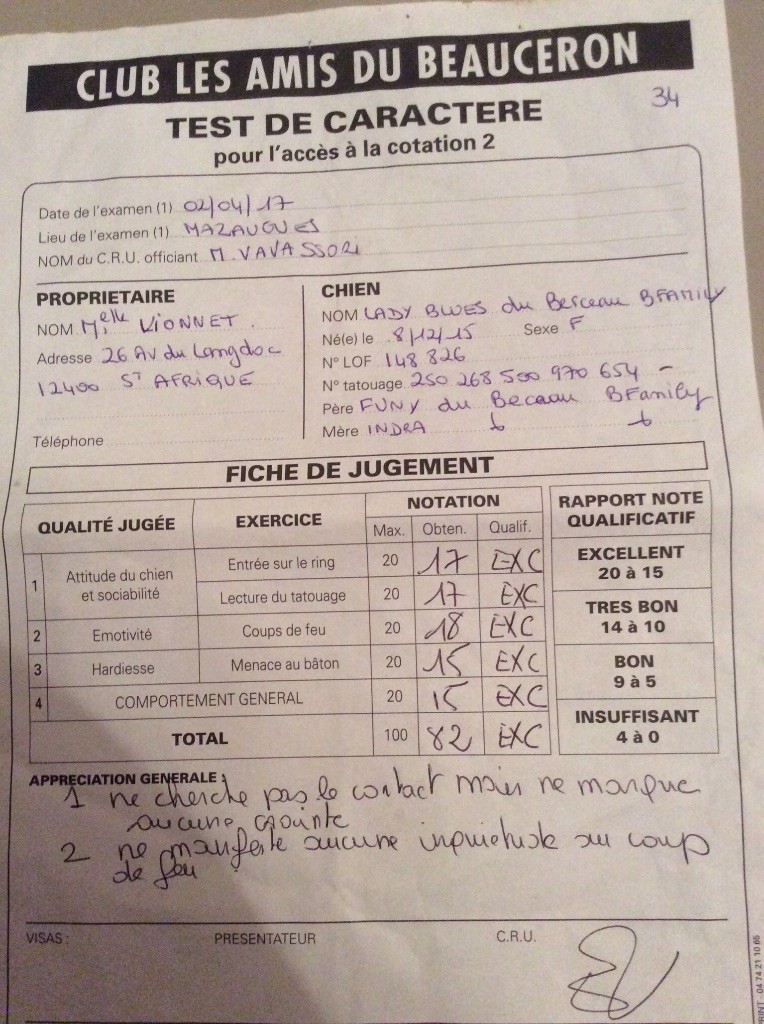 CLUB LES AMIS DU BEAUCERON
TEST DE CARACTERE
34
pour l'accès à la cotation 2
Date de l'examen (1) 02/04/17
Lieu de l'examen (1) MAZAUGUES
NOM du C.R.U. officiant M. VAVASSORI
PROPRIETAIRE
NOM Melle VIONNET
Adresse 26 AV du Langdoc
12400 St AFRIQUE
Téléphone
CHIEN
NOM LADY BLUES du Berceau BFAMILY
Né(e) le 8/12/15 Sexe F
N° LOF 148 826
N° tatouage 250 268 500 970 654 -
Père FUNY du Beceau BFamily
Mère INDRA
FICHE DE JUGEMENT
QUALITÉ JUGÉE EXERCICE NOTATION
Max. Obten. Qualif.
1 Attitude du chien et sociabilité Entrée sur le ring 20 17 EXC
Lecture du tatouage 20 17 EXC
2 Emotivité Coups de feu 20 18 EXC
3 Hardiesse Menace au bâton 20 15 EXC
4 COMPORTEMENT GENERAL 20 15 EXC
TOTAL 100 82 EXC
RAPPORT NOTE
QUALIFICATIF
EXCELLENT
20 à 15
TRES BON
14 à 10
BON
9 à 5
INSUFFISANT
4 à 0
APPRECIATION GENERALE :
1 ne cherche pas le contact mais ne marque
aucune crainte
2 ne manifeste aucune inquietude au coup
de feu
VISAS : PRESENTATEUR C.R.U.
PRINT - 04 74 21 10 65